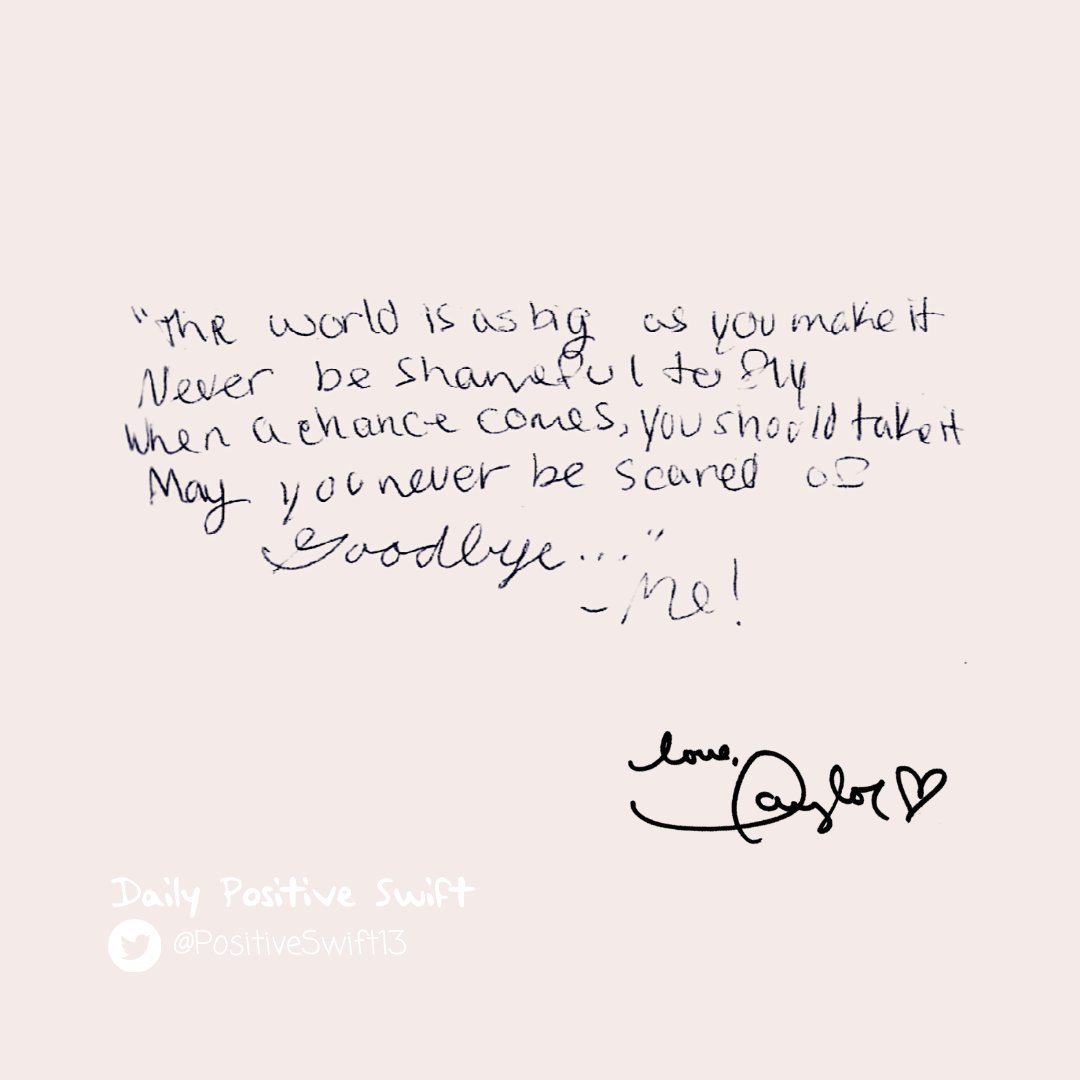 "The world is as big as you make it
Never be shameful to fly
When a chance comes, you should take it
May you never be scared of
Goodbye..."
- Me!
love,
Taylor♡
Daily Positive Swift
@PositiveSwift13